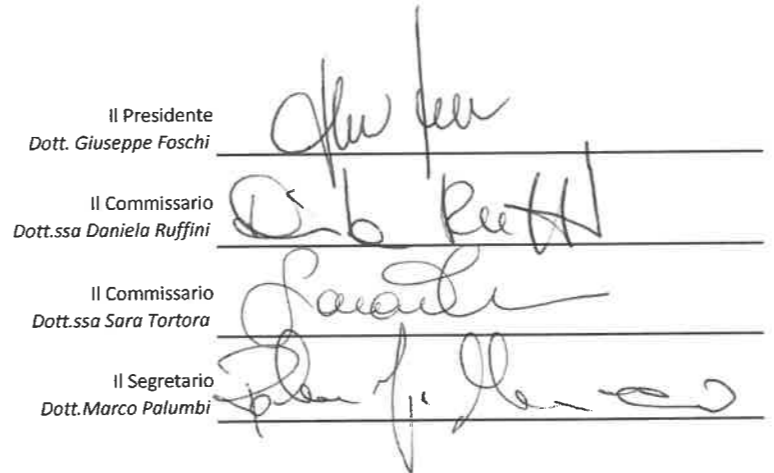 Il Presidente
Dott. Giuseppe Foschi
Il Commissario
Dott.ssa Daniela Ruffini
Il Commissario
Dott.ssa Sara Tortora
Il Segretario
Dott.Marco Palumbi